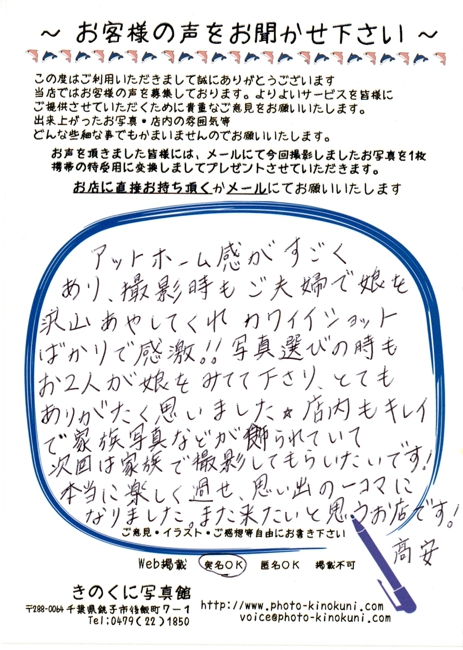 ～ お客様の声をお聞かせ下さい ～
この度はご利用いただきまして誠にありがとうございます
当店ではお客様の声を募集しております。よりよいサービスを皆様に
ご提供させていただくために貴重なご意見をお願いいたします。
出来上がったお写真・店内の雰囲気等
どんな些細な事でもかまいませんのでお願いいたします。
お声を頂きました皆様には、メールにて今回撮影しましたお写真を1枚
携帯の待受用に変換しましてプレゼントさせていただきます。
お店に直接お持ち頂くかメールにてお願いいたします
アットホーム感がすごく
あり、撮影時もご夫婦で娘を
沢山あやしてくれ カワイイショット
ばかりで感激!! 写真選びの時も
お2人が娘をみてて下さり、とても
ありがたく思いました☆ 店内もキレイ
で家族写真などが飾られていて
次回は家族で撮影してもらいたいです!
本当に楽しく過せ、思い出の一コマに
なりました。また来たいと思うお店です!
ご意見・イラスト・ご感想等自由にお書き下さい
高安
Web掲載 実名OK 匿名OK 掲載不可
きのくに写真館
〒288-0064 千葉県銚子市飯町7－1
Tel:0479(22)1850
http://www.photo-kinokuni.com/
voice@photo-kinokuni.com